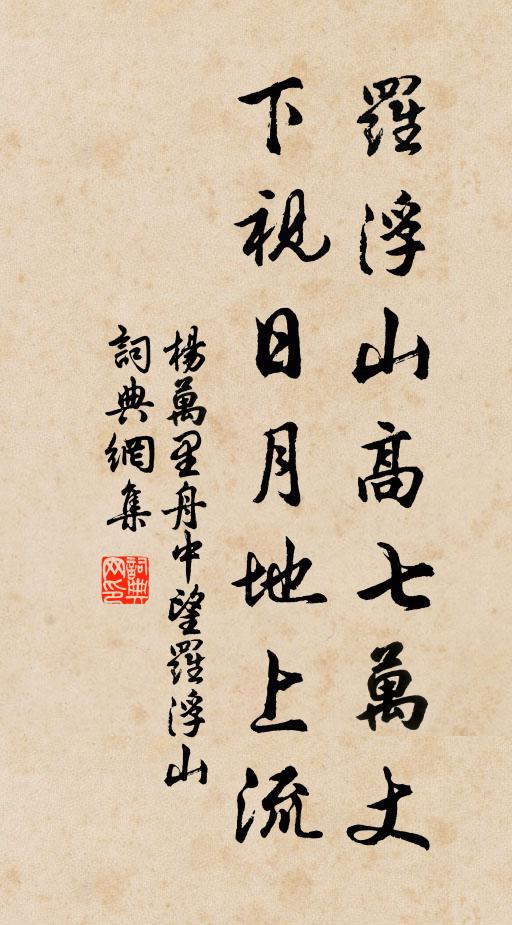 羅浮山高七萬丈
下視日月地上流
楊萬里舟中望羅浮山
詞典網集
詞典网印